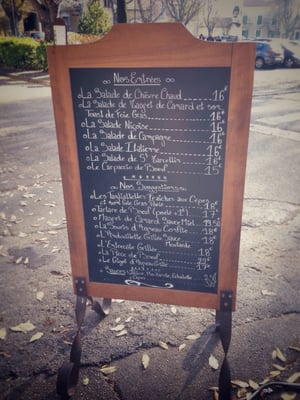 Nos Entrées
La Salade de Chèvre Chaud 16€
La Salade de Magret de Canard et son
Toast de Foie Gras 16€
La Salade Niçoise 16€
La Salade de Campagne 16€
La Salade Italienne 16€
La Salade de St Marcellin 16€
Le Carpaccio de Boeuf 15€
Nos Suggestions
Les Tagliatelles Fraîches aux Cèpes
et Foie Gras 18€
Tartare de Boeuf 17€
Magret de Canard Sauce Miel 19.50
La Souris d'Agneau Confite 18€
L'Andouillette Grillée Sauce
Moutarde 18€
L'Entrecôte Grillée
La Pièce de Boeuf
Le Gigot d'Agneau Grillé
Sauces